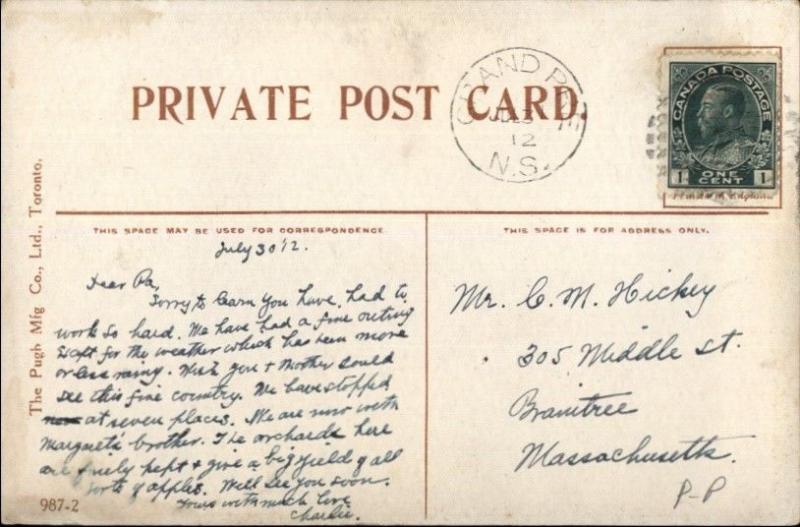 PRIVATE POST CARD.
GRAND PRE
JUL 3
12
N.S.
CANADA POSTAGE
1 ONE CENT 1
The Pugh Mfg Co., Ltd., Toronto.
THIS SPACE MAY BE USED FOR CORRESPONDENCE
July 30 '12.
Dear Pa,
Sorry to learn you have had to
work so hard. We have had a fine outing
except for the weather which has been more
or less rainy. Wish you + Mother could
see this fine country. We have stopped
at seven places. We are now with
Margaret's brother. The orchards here
are finely kept + give a big yield of all
sorts of apples. Will see you soon.
Yours with much love
Charlie.
987-2
THIS SPACE IS FOR ADDRESS ONLY.
Mr. C. M. Hickey
305 Middle St.
Braintree
Massachusetts.
P-P